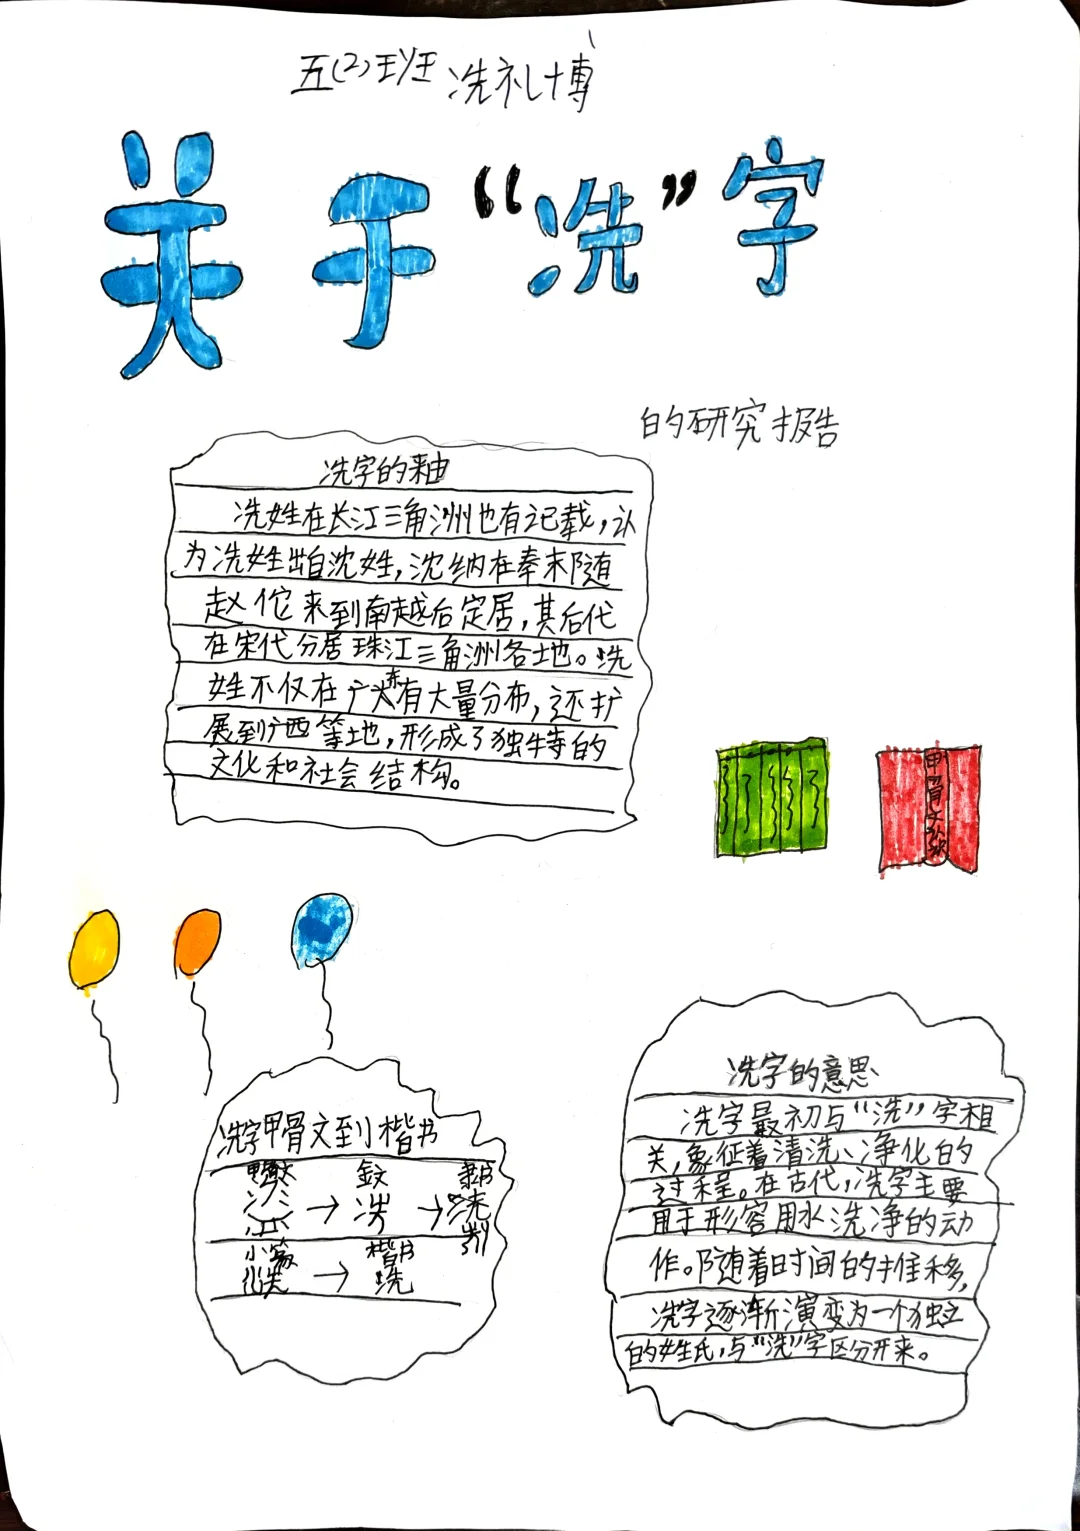 五(2)班 冼礼博
关于“冼”字
的研究报告
冼字的来由
冼姓在长江三角洲也有记载，认
为冼姓出自沈姓，沈纳在秦末随
赵佗来到南越后定居，其后代
在宋代分居珠江三角洲各地。冼
姓不仅在广东有大量分布，还扩
展到广西等地，形成了独特的
文化和社会结构。
甲骨文
冼字甲骨文到楷书
甲骨文 金文 隶书
→ 冼 → 冼
小篆 楷书
冼 → 冼
冼字的意思
冼字最初与“洗”字相
关，象征着清洗、净化的
过程。在古代，冼字主要
用于形容用水洗净的动
作。随着时间的推移，
冼字逐渐演变为一个独立
的姓氏，与“洗”字区分开来。